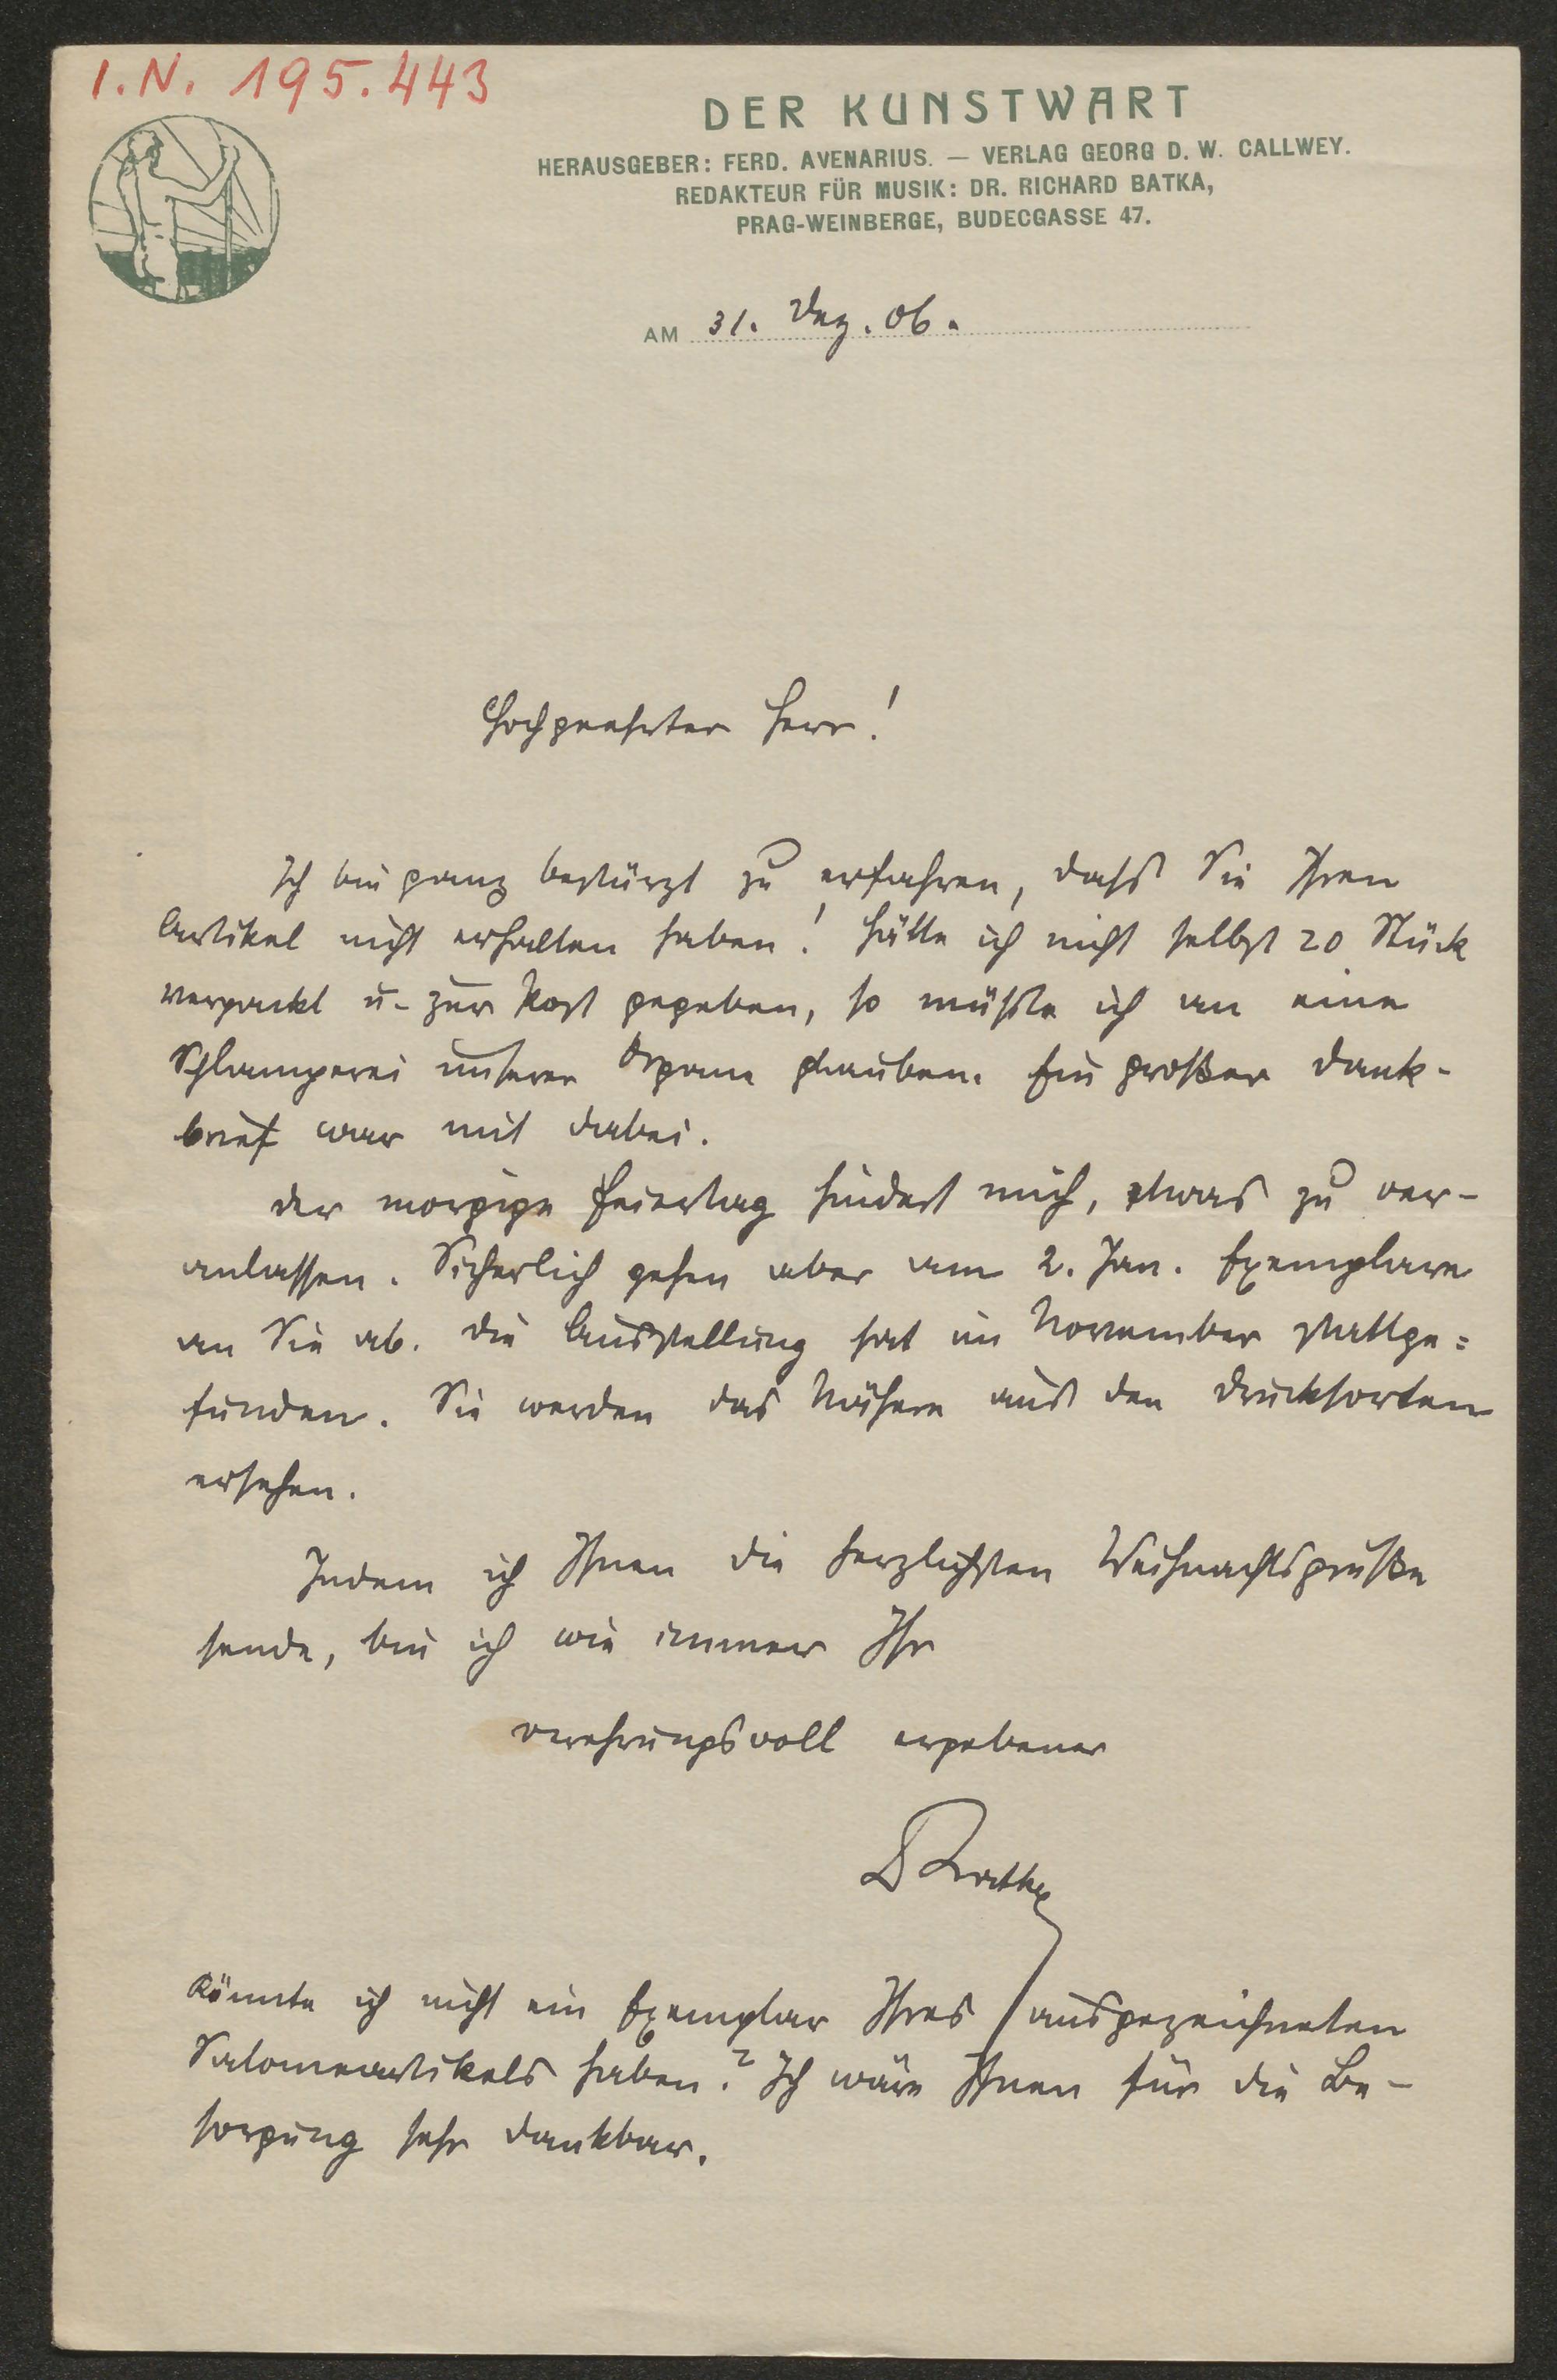 I.N. 195.443
DER KUNSTWART
HERAUSGEBER: FERD. AVENARIUS. — VERLAG GEORG D. W. CALLWEY.
REDAKTEUR FÜR MUSIK: DR. RICHARD BATKA,
PRAG-WEINBERGE, BUDECGASSE 47.
AM 31. Dez. 06.
Hochgeehrter Herr!
Ich bin ganz bestürzt zu erfahren, dass Sie Ihren
Artikel nicht erhalten haben! Hätte ich nicht selbst 20 Stück
verpackt u. zur Post gegeben, so müsste ich an eine
Schlamperei unserer Organe glauben. Ein großer Dank-
brief war mit dabei.
Der morgige Feiertag hindert mich, etwas zu ver-
anlassen. Sicherlich gehen aber am 2. Jan. Exemplare
an Sie ab. Die Ausstellung hat im November stattge=
funden. Sie werden das Nähere aus den Drucksorten
ersehen.
Indem ich Ihnen die herzlichsten Weihnachtsgrüße
sende, bin ich wie immer Ihr
verehrungsvoll ergebener
DrBatka
Könnte ich nicht ein Exemplar Ihres ausgezeichneten
Salomeartikels haben? Ich wäre Ihnen für die Be-
sorgung sehr dankbar.